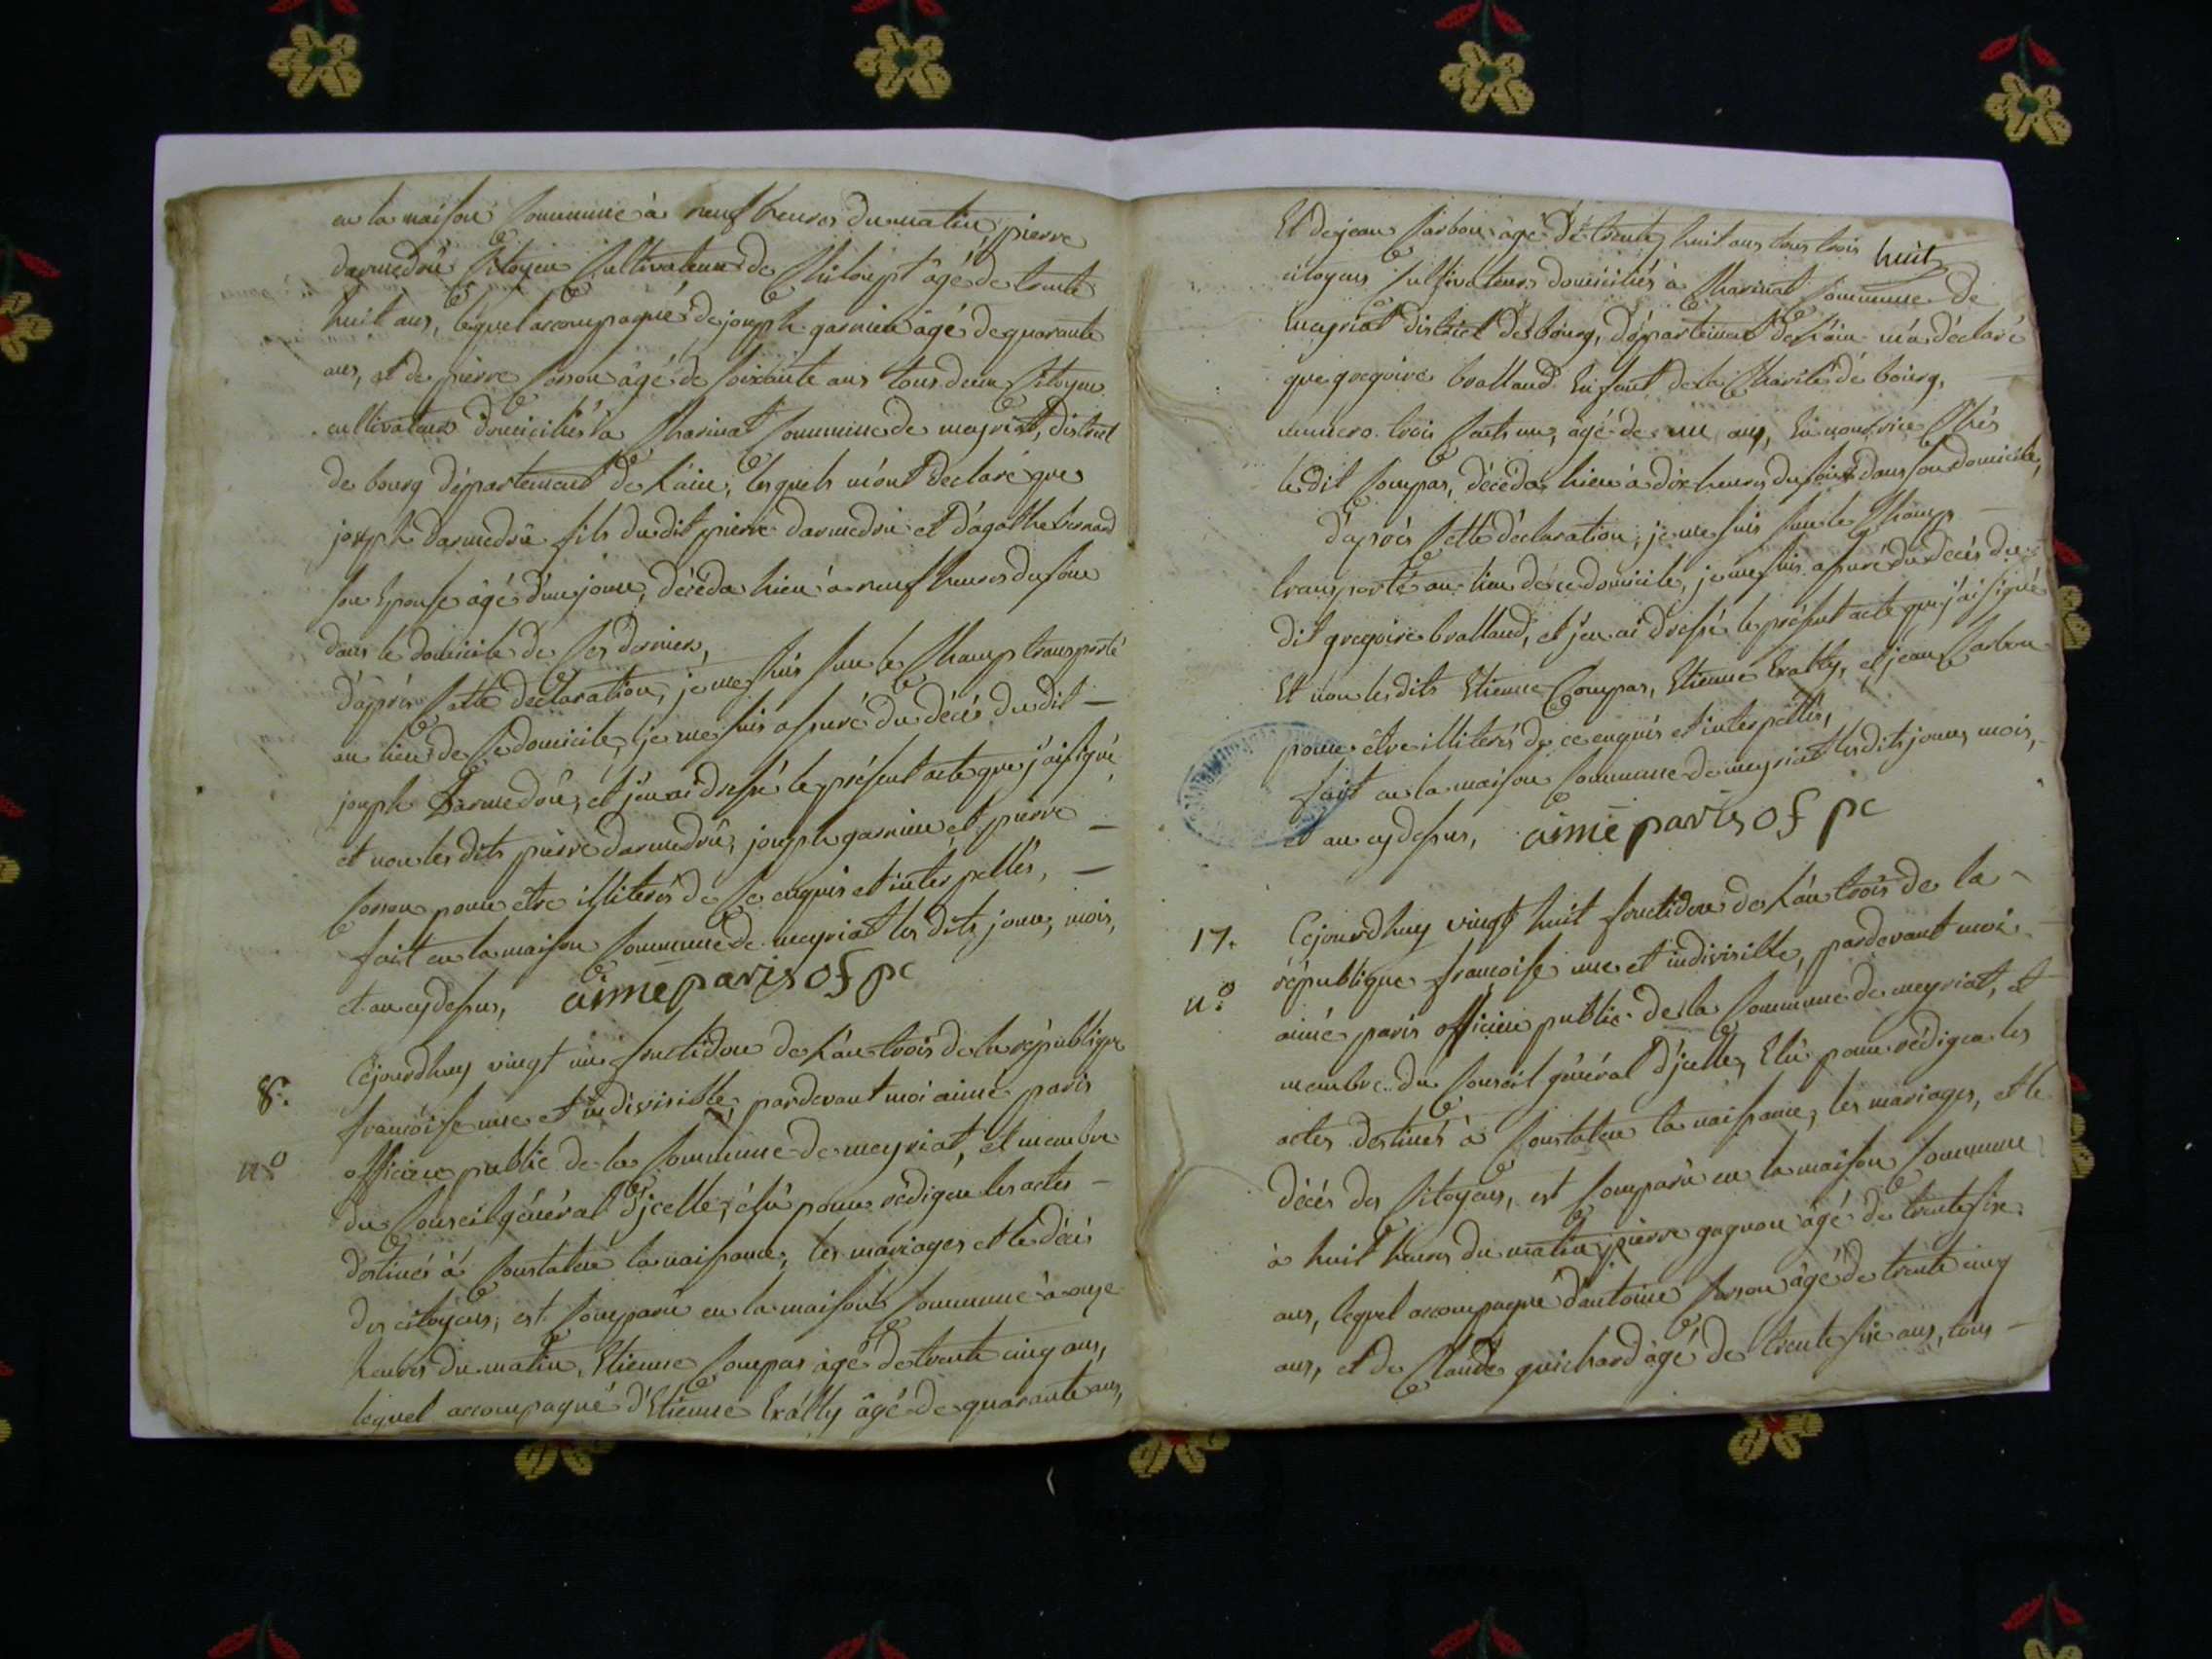 en la maison commune à neuf heures du matin, pierre
darmedru citoyen cultivateur de âgé de trente
huit ans, lequel accompagné de joseph garnier âgé de quarante
ans, et de pierre âgé de soixante ans tous deux citoyens
cultivateurs domiciliés à Charinat commune de meyriat, district
de bourg département de L'ain, lesquels m'ont declaré que
joseph darmedru fils du dit pierre darmedru et d'agathe bernard
son Epouse âgé d'un jour, décéda hier à neuf heures du soir
dans le domicile de ces derniers,
d'après cette declaration, je me suis sur le champ transporté
au lieu de ce domicile, je me suis assuré du décès du dit —
joseph Darmedru, et j'en ai dressé le présent acte que j'ai signé,
et non les dits pierre darmedru, joseph garnier et pierre —
pour être illiterés de ce enquis et interpellés, —
fait en la maison commune de meyriat les dits jour, mois,
et an cy dessus, aimé paris of pc
8. Cejourdhuy vingt un fructidor de L'an trois de la république
françoise une et indivisible, pardevant moi aimé paris
n.º officier public de la commune de meyriat, et membre
du conseil général d'jcelle, élu pour rédiger les actes —
destinés à constater la naissance, les mariages et le décès
des citoyens, est comparu en la maison commune à onze
heures du matin, Etienne Compas âgé de trente cinq ans,
lequel accompagné d'Etienne âgé de quarante ans,
huit
Et de jean Carbon âgé de trente huit ans tous trois
citoyens cultivateurs domiciliés à Charinat commune de
meyriat district de bourg, département de L'ain m'a déclaré
que gregoire bralland Enfant de la Charité de bourg,
numero trois cents un, âgé de un ans, En nourrice Chés
le dit Compas, décéda hier à dix heures du soir dans son domicile,
d'après cette déclaration, je me suis sur le champ —
transporté au lieu de ce domicile, je me suis assuré du décès du
dit gregoire bralland, et j'en ai dressé le présent acte que j'ai signé
Et non les dits Etienne Compas, Etienne et jean Carbon
pour être illiterés de ce enquis et interpellés,
fait en la maison commune de meyriat les dits jour, mois,
et an cy dessus, aimé paris of pc
17. Cejourdhuy vingt huit fructidor de L'an trois de la
république françoise une et indivisible, pardevant moi
n.º aimé paris officier public de la commune de meyriat, et
membre du conseil général d'jcelle, Elu pour rédiger les
actes destinés à constater la naissance, les mariages, et le
décès des citoyens, est comparu en la maison commune
à huit heures du matin pierre gagnon âgé de trente six
ans, lequel accompagné d'antoine âgé de trente cinq
ans, et de Claude guichard âgé de trente six ans, tous —